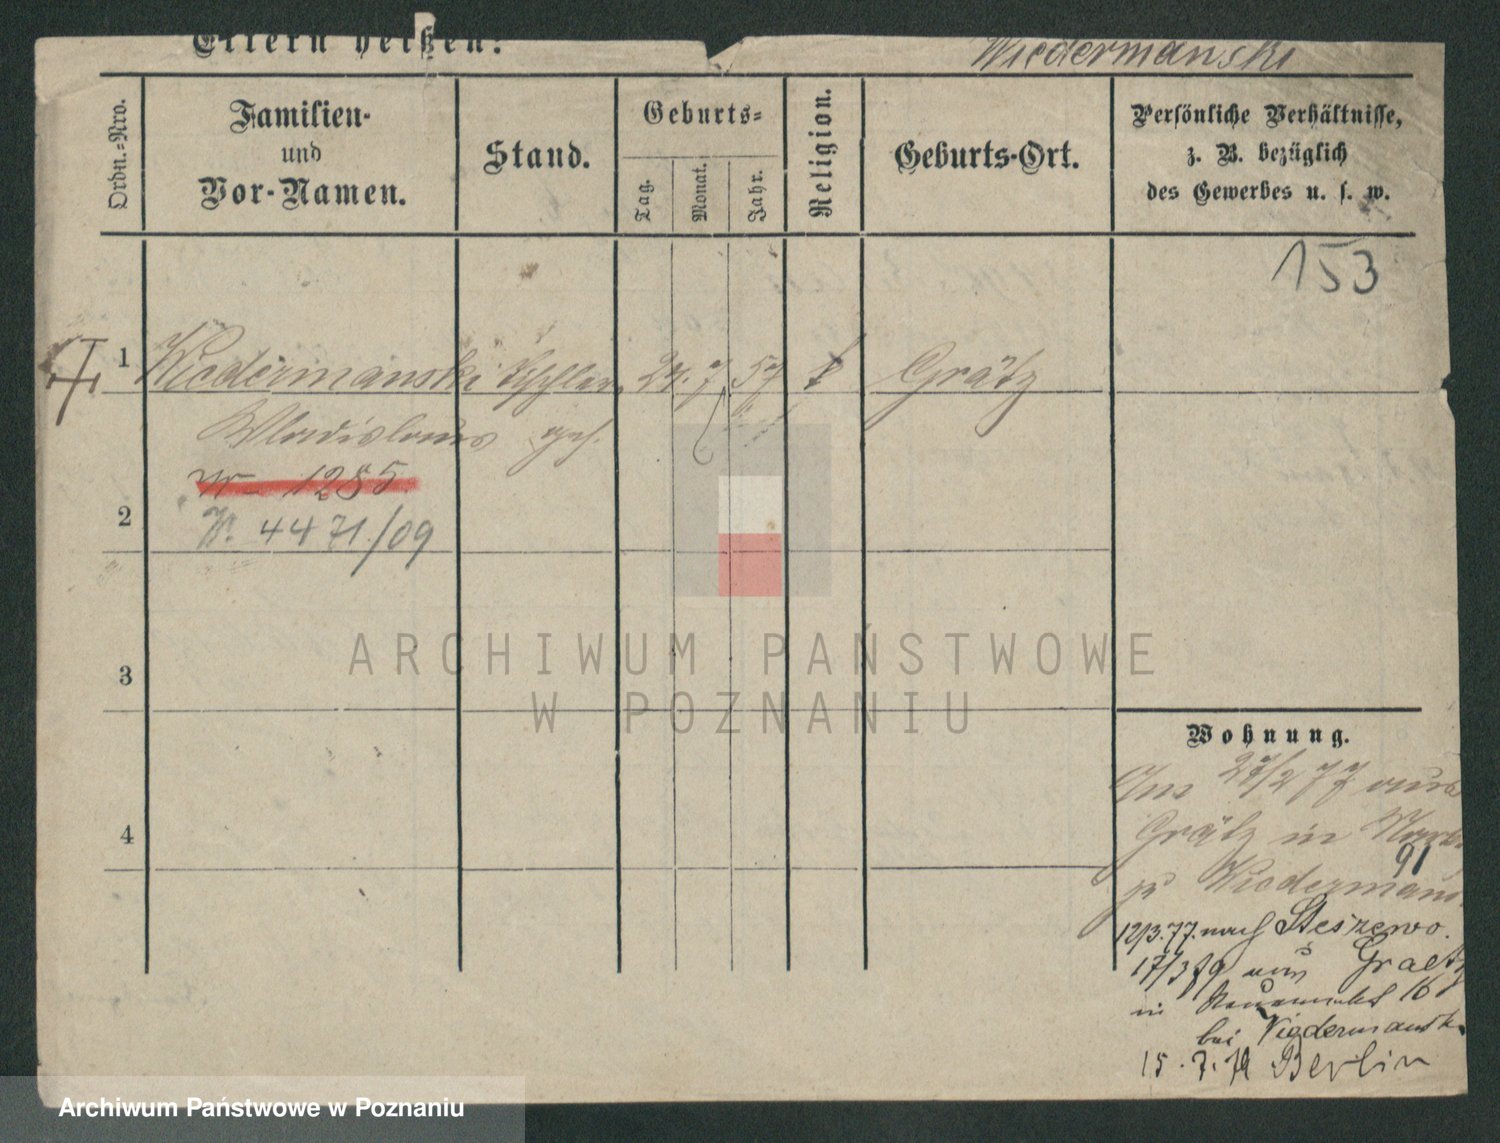 Eltern heißen:
Wiedermanski
Ordn.-Nro.
Familien-
und
Vor-Namen.
Stand.
Geburts-
Tag.
Monat.
Jahr.
Religion.
Geburts-Ort.
Persönliche Verhältnisse,
z. B. bezüglich
des Gewerbes u. s. w.
153
1 Wiedermanski Tischler 24. 7 57 k Grätz
Wladislaus
W 1285.
2
W. 4471/09
3
4
Wohnung.
Am 27/2 77 aus
Grätz in
91
zu Wiedermans
12/3.77. nach Steszewo.
17/3 79 aus Graetz
in 16
bei Wiedermansk
15.7.79 Berlin
ARCHIWUM PAŃSTWOWE
W POZNANIU
Archiwum Państwowe w Poznaniu